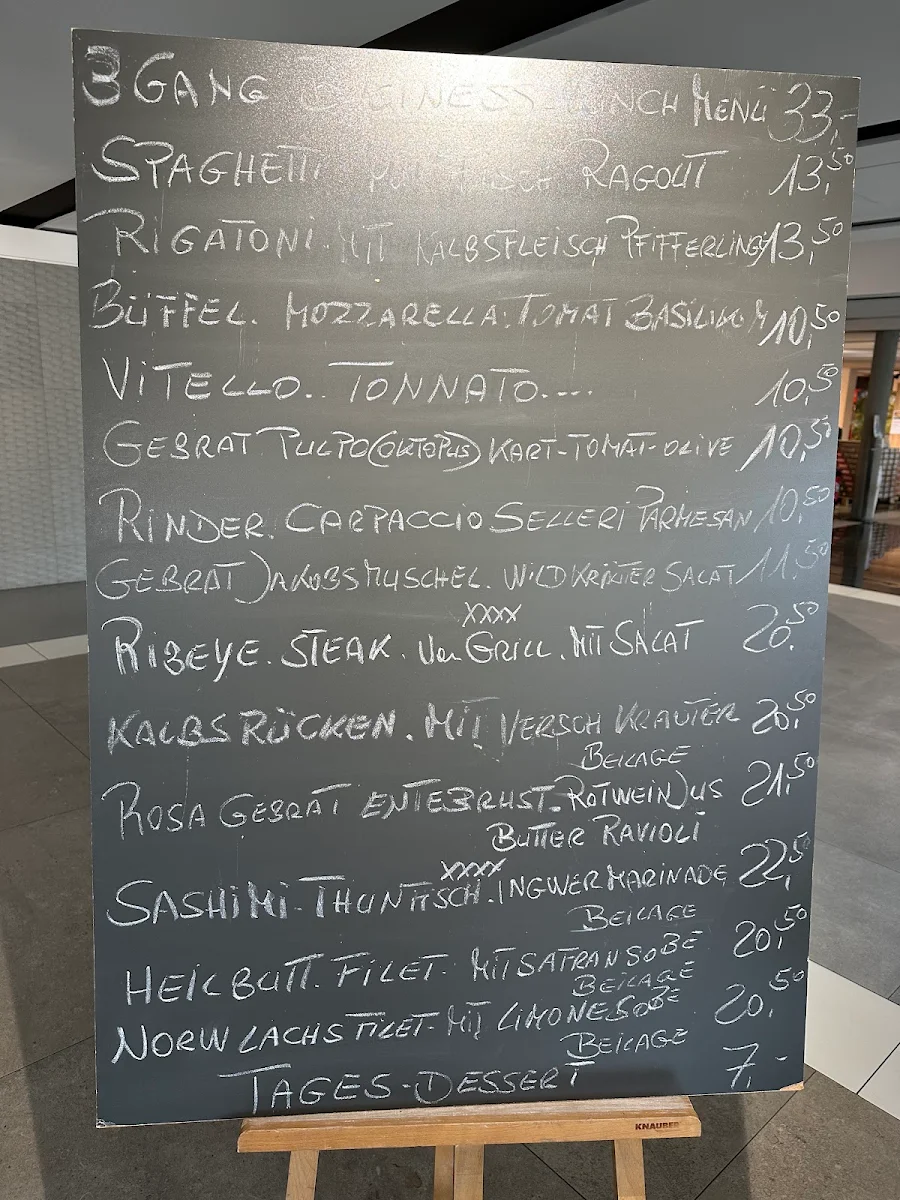 3 GANG LUNCH MENÜ 33,-
SPAGHETTI RAGOUT 13,50
RIGATONI. MIT KALBSFLEISCH PFIFFERLING 13,50
BÜFFEL. MOZZARELLA. TOMAT BASILIKUM 10,50
VITELLO.. TONNATO.... 10,50
GEBRAT PULPO (OKTOPUS) KART-TOMAT-OLIVE 10,50
RINDER. CARPACCIO SELLERI PARMESAN 10,50
GEBRAT JAKOBSMUSCHEL. WILDKRÄUTER SALAT 11,50
XXXX
RIBEYE. STEAK. Von GRILL. MIT SALAT 20,50
KALBSRÜCKEN. MIT VERSCH KRÄUTER 20,50
BEILAGE
ROSA GEBRAT ENTEBRUST. ROTWEINJUS 21,50
BUTTER RAVIOLI
XXXX
SASHIMI-THUNFISCH. INGWER MARINADE 22,5
BEILAGE
HEILBUTT. FILET. MIT SAFRANSOßE 20,50
BEILAGE
NORW LACHSFILET- MIT LIMONESOßE 20,50
BEILAGE
TAGES-DESSERT 7,-
KNAUBER